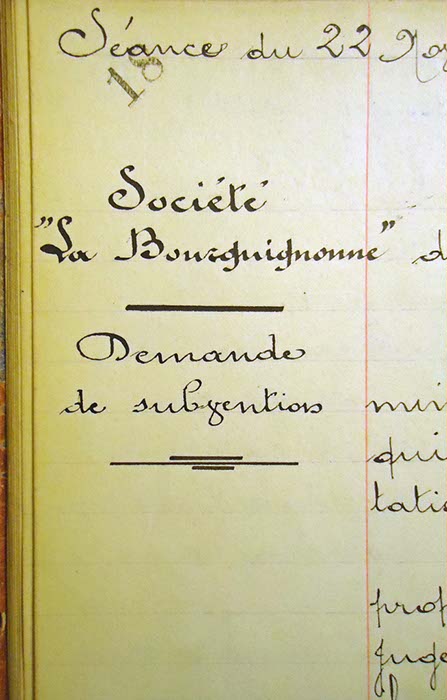 Séance du 22 No
18
Société
"La Bourguignonne" d
Demande
de subvention
min
qui
tatio
prop
juge